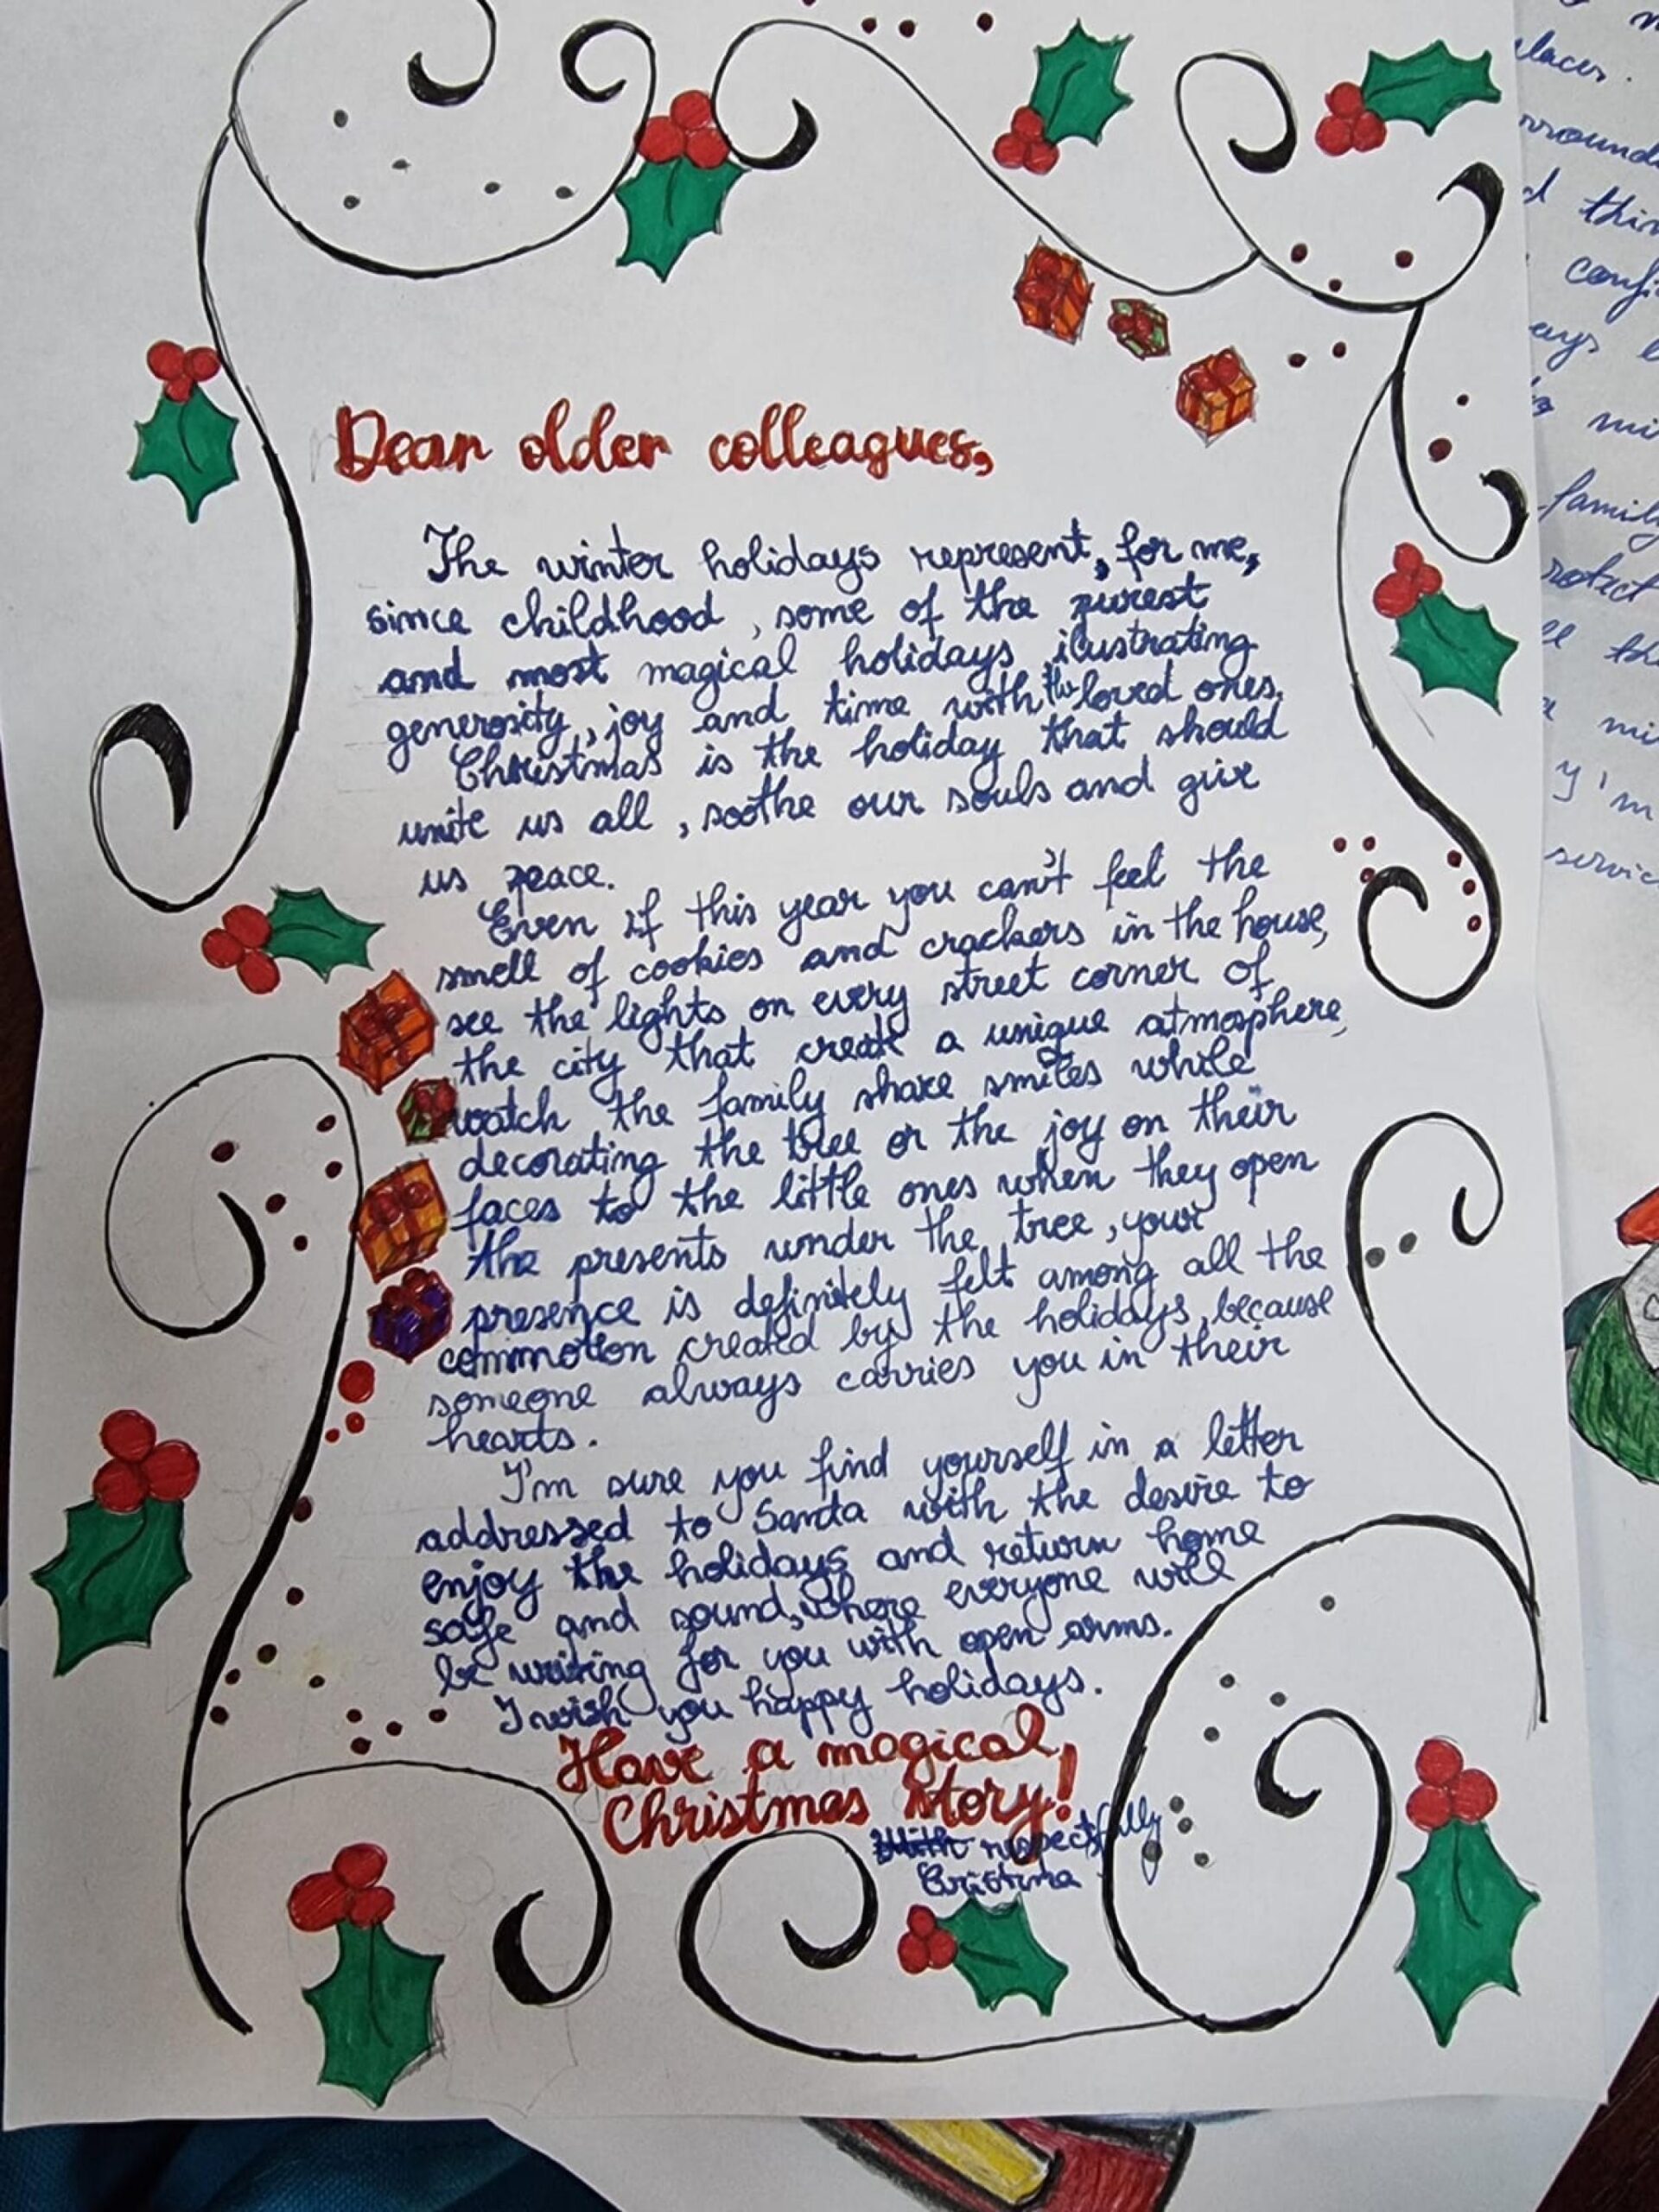 Dear older colleagues,
The winter holidays represent, for me,
since childhood, some of the purest
and most magical holidays ilustrating
generosity, joy and time with the loved ones.
Christmas is the holiday that should
unite us all, soothe our souls and give
us peace.
Even if this year you can't feel the
smell of cookies and crackers in the house,
see the lights on every street corner of
the city that create a unique atmosphere,
watch the family share smiles while
decorating the tree or the joy on their
faces to the little ones when they open
the presents under the tree, your
presence is definitely felt among all the
commotion created by the holidays, because
someone always carries you in their
hearts.
I'm sure you find yourself in a letter
addressed to Santa with the desire to
enjoy the holidays and return home
safe and sound, where everyone will
be writing for you with open arms.
I wish you happy holidays.
Have a magical
Christmas story!
respectfully
Cristina
places.
d
family
y'm